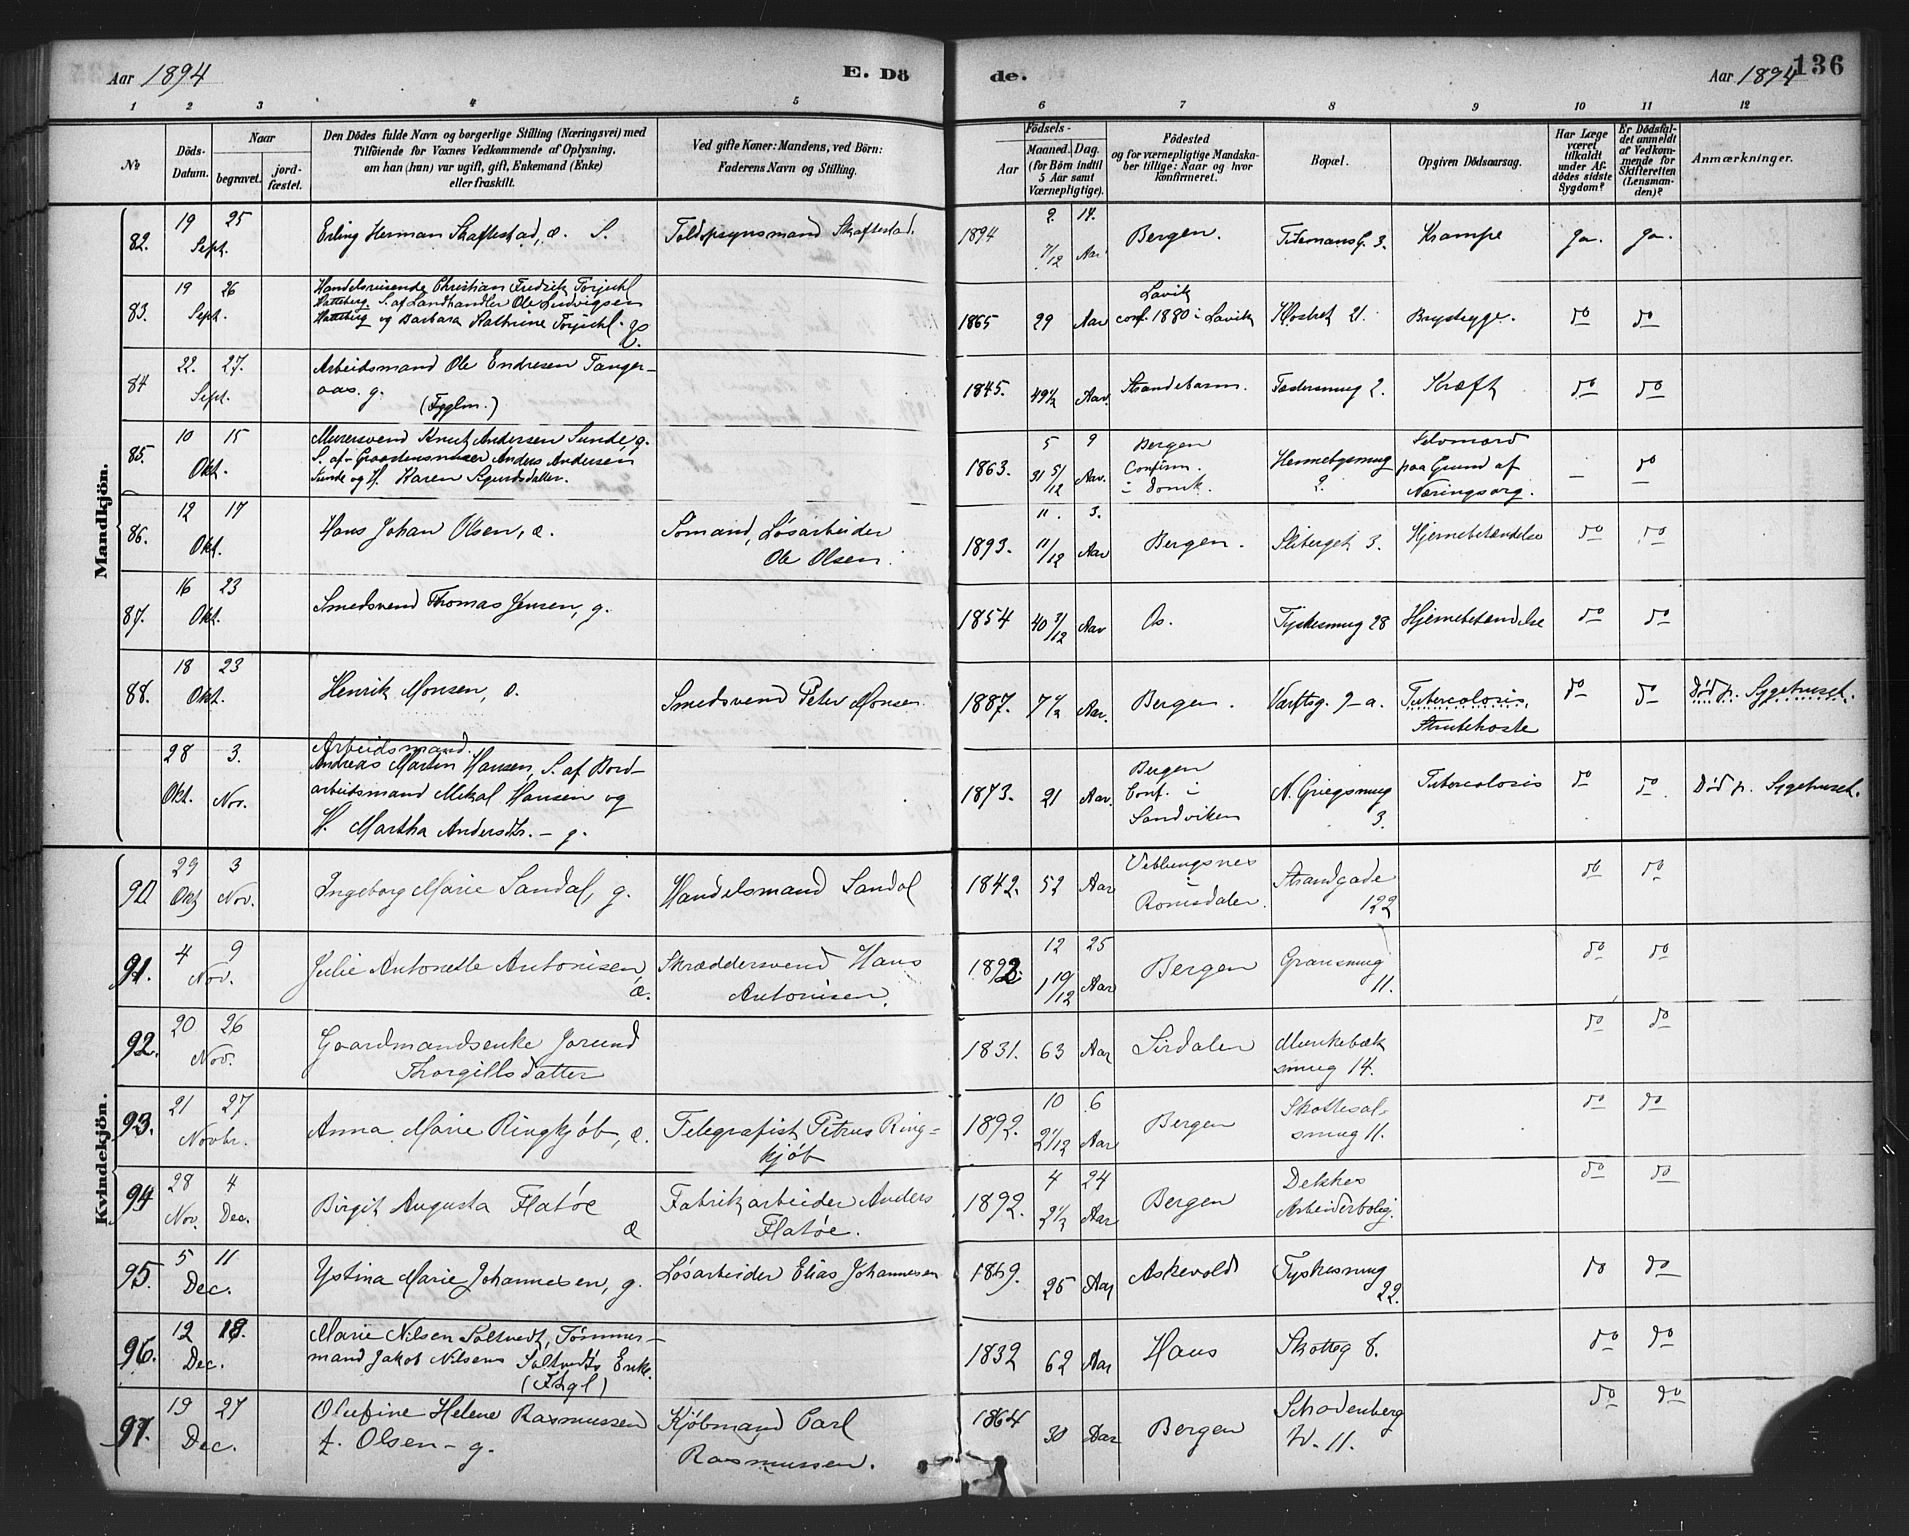 Aar 1894
E. Dö
de.
Aar 1894
136
1 2 3 4 5 6 7 8 9 10 11 12
No
Döds-
Datum.
Naar
begravet.
jord-
fæstet.
Den Dödes fulde Navn og borgerlige Stilling (Næringsvei) med
Tilföiende for Voxnes Vedkommende af Oplysning,
om han (hun) var ugift, gift, Enkemand (Enke)
eller fraskilt.
Ved gifte Koner: Mandens, ved Börn:
Faderens Navn og Stilling.
Födsels-
Aar
Maaned. Dag.
(for Börn indtil
5 Aar samt
Værnepligtige).
Födested
og for værnepligtige Mandska-
ber tillige: Naar og hvor
konfirmeret.
Bopæl.
Opgiven Dödsaarsag.
Har Læge
været
tilkaldt
under Af-
dödes sidste
Sygdom?
Er Dödsfal-
det anmeldt
af Vedkom-
mende for
Skifteretten
(Lensman-
den)?
Anmærkninger.
Mandkjön.
82. 19 25 Sept. Erling Herman Skaftestad, æ. S. Toldopsynsmand Skaftestad. 1894 2. 14. 7/12 Aar Bergen. G. 3. Krampe Ja. Ja.
83. 19 26 Sept. Handelsreisende Christian Fredrik Torjuhl
Hatteberg. S. af Landhandler Ole Ludvigsen
Hatteberg og Barbara Kathrine Torjuhl. g.
1865 29 Aar Lavik
conf. 1880 i Lavik Klostret 21. Brystsyge. do do
84 22. 27. Sept. Arbeidsmand Ole Endresen Tanger-
aas. g.
1845. 49½ Aar. Strandebarm. 2. Kræft do do
85. 10 15 Okt. Murersvend Knut Andersen Sunde, g.
S. af Anders Andersen
Sunde og H. Karen Sjurdsdatter.
1863. 5 9 31 5/12 Aar. Bergen
Confirm.
i Domk. Selvmord
paa Grund af
Næringssorg. – do
86. 12 17 Okt. Hans Johan Olsen, æ. Sømand, Løsarbeider
Ole Olsen. 1893. 11. 3. 11/12 Aar Bergen. 3. Hjernebetændelse do do
87. 16 23 Okt. Smedsvend Thomas Jensen, g. 1854 40 3/12 Aar Os. Tyskesmug 28 Hjernebetændelse do do
88. 18 23 Okt. Henrik Monsen, æ. Smedsvend Peter Monsen. 1887. 7½ Aar. Bergen. Værftsg. 7-a. Tubercolosis,
Strubehoste do do Død p. Sygehuset.
28 3. Okt. Nov. Arbeidsmand.
Andreas Martin Hansen, S. af Bord-
arbeidsmand Mikal Hansen og
H. Martha Andersdtr. – g.
1873. 21 Aar. Bergen
Conf. i
Sandviken N. Griegsmug
3. Tubercolosis do do. Død p. Sygehuset.
Kvindekjön.
90 29 3 Okt Nov. Ingeborg Marie Sandal, g. Handelsmand Sandal 1842. 52 Aar Veblungsnes
i
Romsdalen. Strandgade
122 do do
91. 4 9 Nov. Julie Antonette Antonisen
æ. Skræddersvend Hans
Antonisen. 1892 12 25 1 10/12 Aar Bergen Gransmug
11. do do
92. 20 26 Nov. Gaardmandsenke Jorund
Thorgillsdatter 1831. 63 Aar Sirdalen Munkebæk
smug 14. do do
93. 21 27 Novbr. Anna Marie Ringkjøb, æ. Telegrafist Petrus Ring-
kjøb 1892. 10 6 2 1/12 Aar Bergen Skottesal-
smug 11. do do
94 28 4 Nov. Dec. Birgit Augusta Flatøe
æ Fabrikarbeider Anders
Flatøe. 1892. 4 24 2½ Aar Bergen Dekkes
Arbeiderbolig. do do
95. 5 11 Dec. Ystina Marie Johannesen, g. Løsarbeider Elias Johannesen 1869. 25 Aar Askevold Tyskesmug
22. do do
96. 12 18. Dec. Marie Nilsen Saltvedt, Tømmer-
mand Jakob Nilsens Saltvedts Enke.
1832 62 Aar Haus Skotteg 8. do do
97. 19 27 Dec. Olufine Helene Rasmussen
f. Olsen – g. Kjøbmand Carl
Rasmussen. 1864 30 Aar Bergen 11. do do